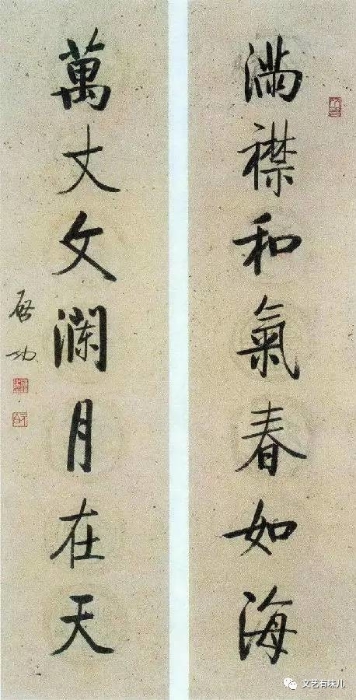 满襟和氣春如海
萬丈文澜月在天
啓功
文艺有味儿